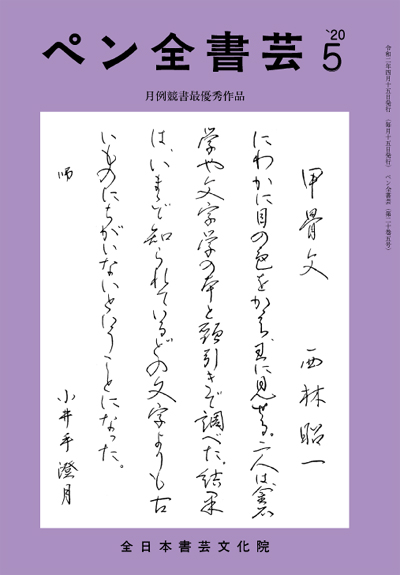 ペン全書芸 '20 5
令和二年四月十五日発行(毎月十五日発行) ペン全書芸(第二十巻五号)
月例競書最優秀作品
甲骨文 西林昭一
にわかに目の色をかえ、互に見せる。二人は、金石
学や文字学の本と頸引きで調べた。結果
は、いままで知られているどの文字よりも古
いものにちがいないということになった。
小井手澄月
全日本書芸文化院